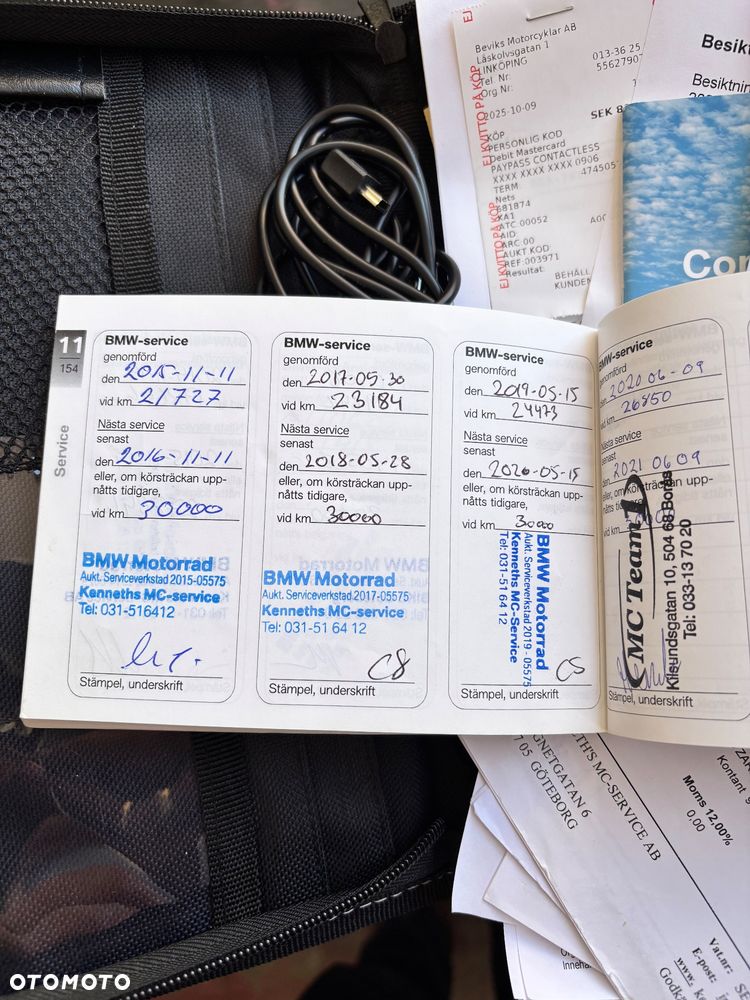 EJ KVITTO PÅ KÖP
Beviks Motorcyklar AB
Låskolvsgatan 1
LINKÖPING
Tel. Nr: 013-36 25
Org Nr: 55627907
2025-10-09
SEK 8
KÖP
PERSONLIG KOD
Debit Mastercard
PAYPASS CONTACTLESS
XXXX XXXX XXXX 0906
TERM 474505
Nets
681874
KA1
ATC 00052
AID
ARC:00
AUKT KOD
REF:003971
Resultat:
BEHÅLL
KUNDEN
Besikt
Besiktnin
Con
11
154
Service
BMW-service
genomförd
den 2015-11-11
vid km 21727
Nästa service
senast
den 2016-11-11
eller, om körsträckan upp-
nåtts tidigare,
vid km 30000
BMW Motorrad
Aukt. Serviceverkstad 2015-05575
Kenneths MC-service
Tel: 031-516412
Stämpel, underskrift
BMW-service
genomförd
den 2017-05-30
vid km 23184
Nästa service
senast
den 2018-05-28
eller, om körsträckan upp-
nåtts tidigare,
vid km 30000
BMW Motorrad
Aukt. Serviceverkstad 2017-05575
Kenneths MC-service
Tel: 031-51 64 12
CS
Stämpel, underskrift
BMW-service
genomförd
den 2019-05-15
vid km 24473
Nästa service
senast
den 2020-05-15
eller, om körsträckan upp-
nåtts tidigare,
vid km 30000
BMW Motorrad
Aukt. Serviceverkstad 2019 - 05575
Kenneths MC-Service
Tel: 031-51 64 12
CS
Stämpel, underskrift
BMW-service
genomförd
den 2020 06-09
vid km 26850
Nästa service
senast
den 2021 06 09
eller, om körsträckan upp-
nåtts
vid km
MC Team
Kilsundsgatan 10, 504 68 Borås
Tel: 033-13 70 20
Stämpel, underskrift
TH'S MC-SERVICE AB
GNETGATAN 6
7 05 GÖTEBORG
Kontant
Moms 12,00%
0,00
Vat.nr:
E-post:
www.
Godk
Inneha
OTOMOTO